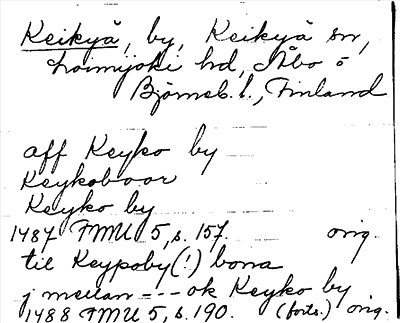 Keikyä, by, Keikyä sn,
Loimijoki hd, Åbo o
Björneb. l., Finland
aff Keyko by
Keykoboar
Keyko by
1487 FMU 5, s. 157. orig.
til Keypoby (!) bona
j mellan --- ok Keyko by
1488 FMU 5, s. 190. (forts.) orig.